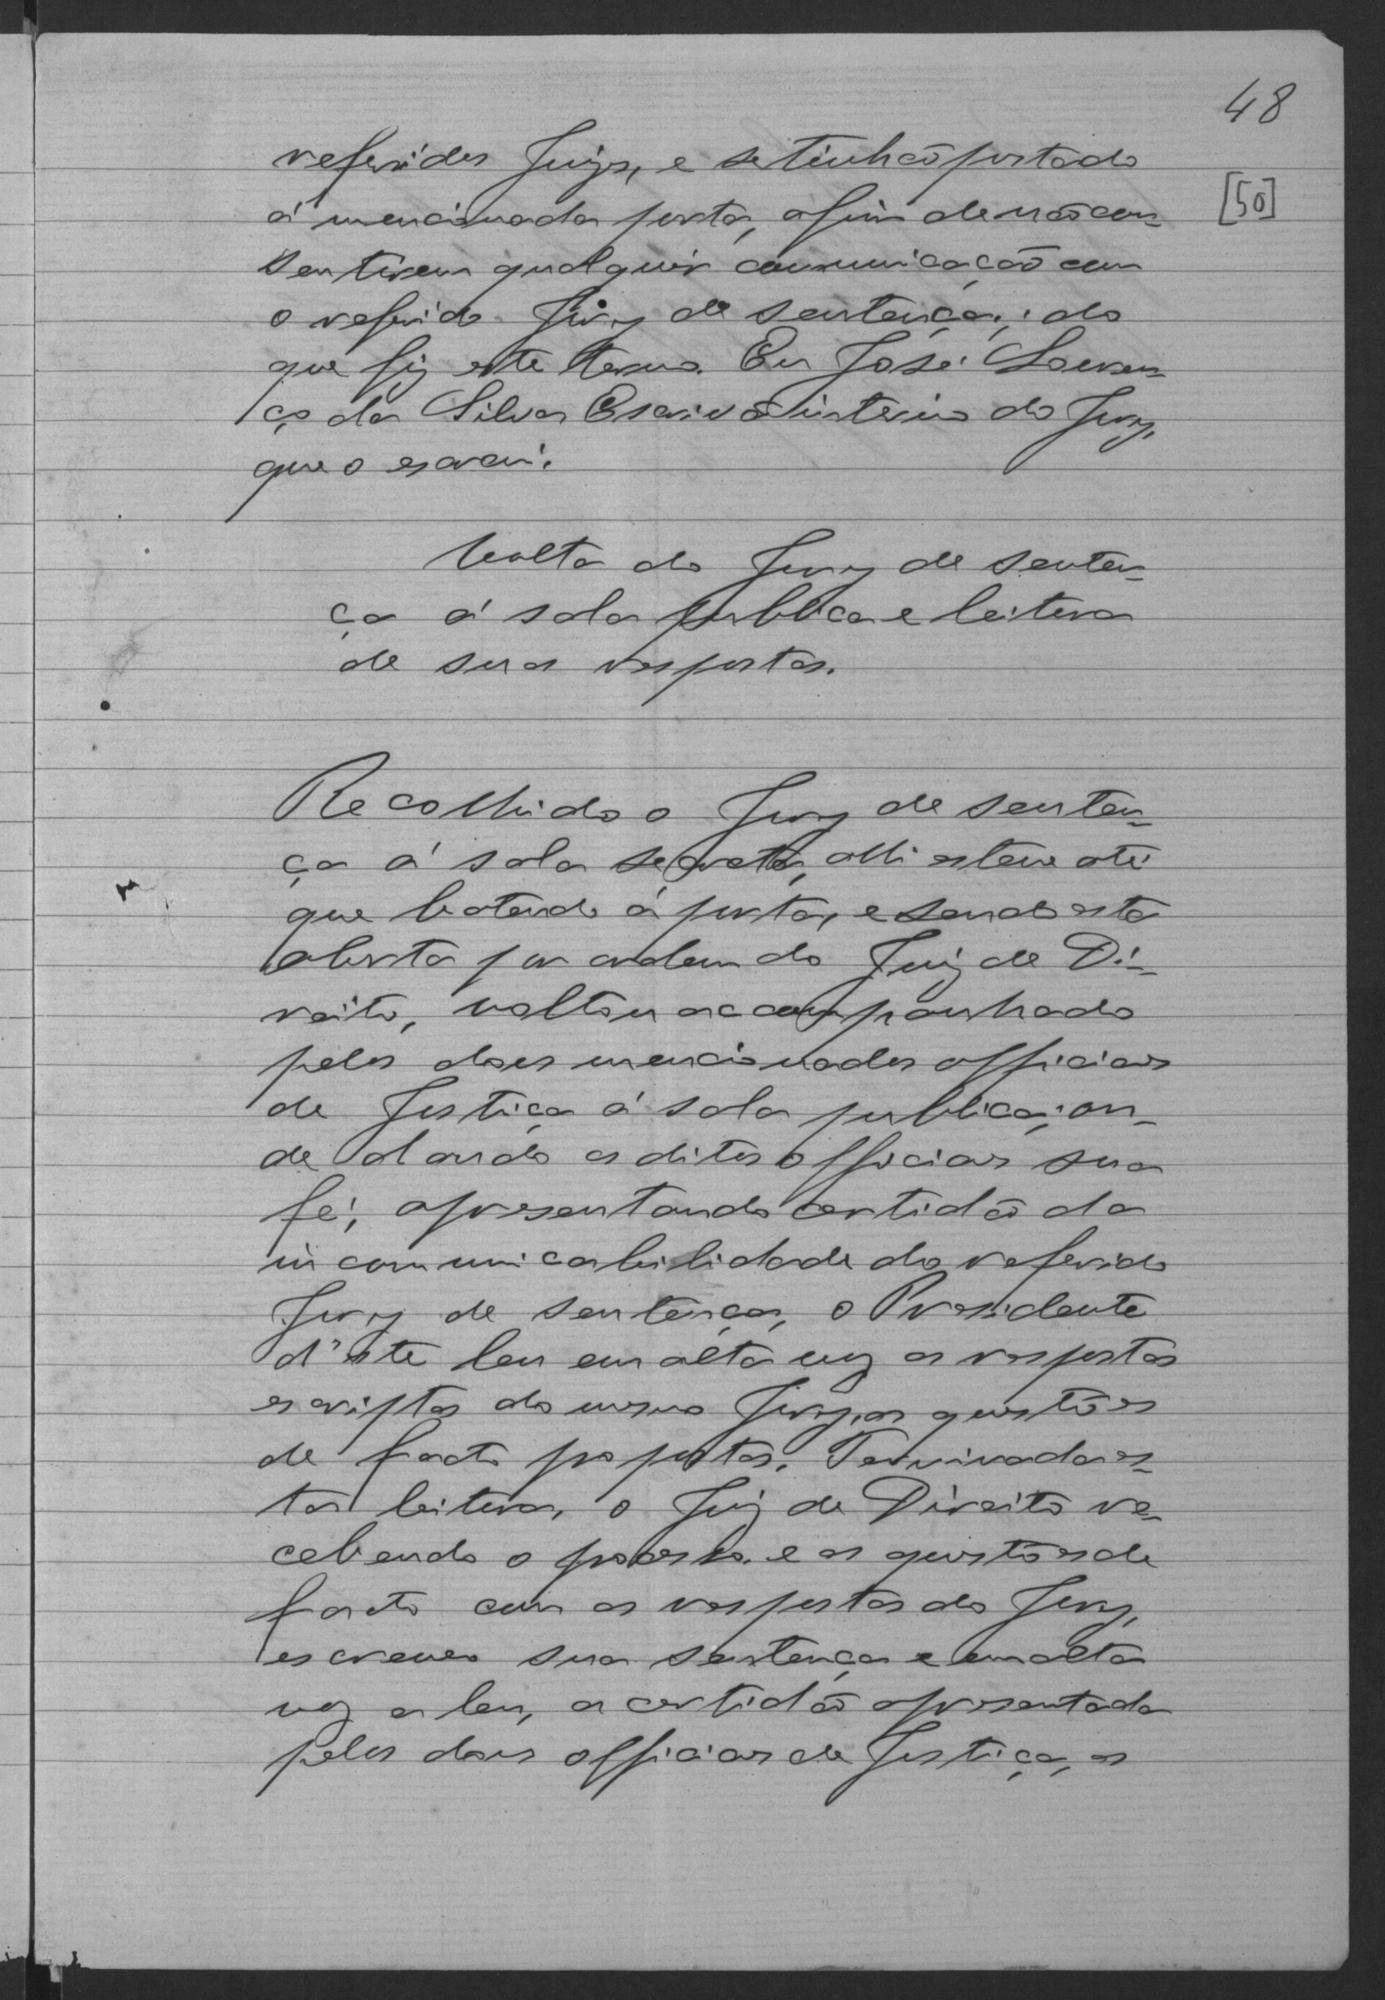 48
[50]
referidos Juizes, e se tinhão postado
á mencionada porta, afim de não con-
sentirem qualquer communicação com
o referido Jury de sentença; do
que fiz este termo. Eu José Louren-
ço da Silva Escrivão interino do Jury,
que o escrevi.
Volta do Jury de senten-
ça á sala publica e leitura
de suas respostas.
Recolhido o Jury de senten-
ça á sala secreta, alli esteve até
que batendo á porta, e sendo esta
aberta por ordem do Juiz de Di-
reito, voltou accompanhado
pelos dous mencionados officiaes
de Justiça á sala publica; on-
de dando os ditos officiaes sua
fé, apresentando certidão da
incommunicabilidade do referido
Jury de sentença, o Presidente
d'este leu em alta voz as respostas
escriptas do mesmo Jury, as questões
de facto propostas. Terminada es-
ta leitura, o Juiz de Direito re-
cebendo o processo e as questões de
facto com as respostas do Jury,
escreveo sua sentença e em alta
voz a leu, a certidão apresentada
pelos dous officiaes de Justiça, as